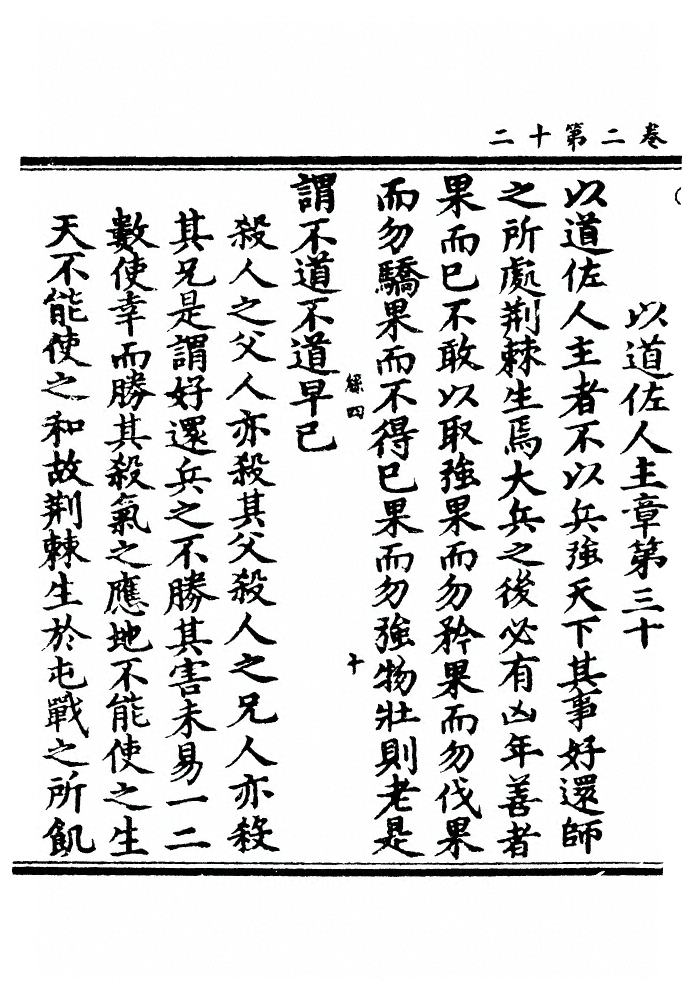 卷二第十二
以道佐人主章第三十
以道佐人主者不以兵強天下其事好還師
之所處荆棘生焉大兵之後必有凶年善者
果而已不敢以取強果而勿矜果而勿伐果
而勿驕果而不得已果而勿強物壯則老是
緜四
十
謂不道不道早已
殺人之父人亦殺其父殺人之兄人亦殺
其兄是謂好還兵之不勝其害未易一二
數使幸而勝其殺氣之應地不能使之生
天不能使之和故荆棘生於屯戰之所飢